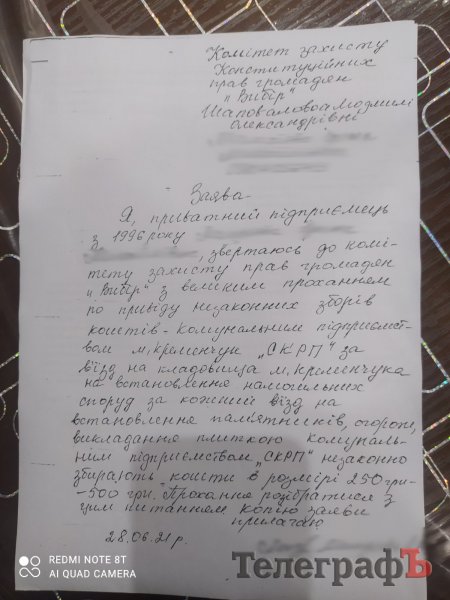 Комітет захисту
Конституційних
прав громадян
„Вибір"
Шаповаловоа Людмилі
Олександрівні
Заява
Я, приватний підприємець
з 1996 року
, звертаюсь до комі-
тету захисту прав громадян
„Вибір" з великим проханням
по приводу незаконних зборів
коштів - комунальним підприємст-
вом м. Кременчук „СКРП" за
в'їзд на кладовища м. Кременчука
на встановлення намогильних
споруд за кожний в'їзд на
встановлення пам'ятників, огорож,
викладання плиткою комуналь-
ним підприємством „СКРП" незаконно
збирають кошти в розмірі 250 грн-
-500 грн. Прохання розібратися з
цим питанням копію заяви
прилагаю
28.06.21 р.
REDMI NOTE 8T
AI QUAD CAMERA
ТелеграфЪ